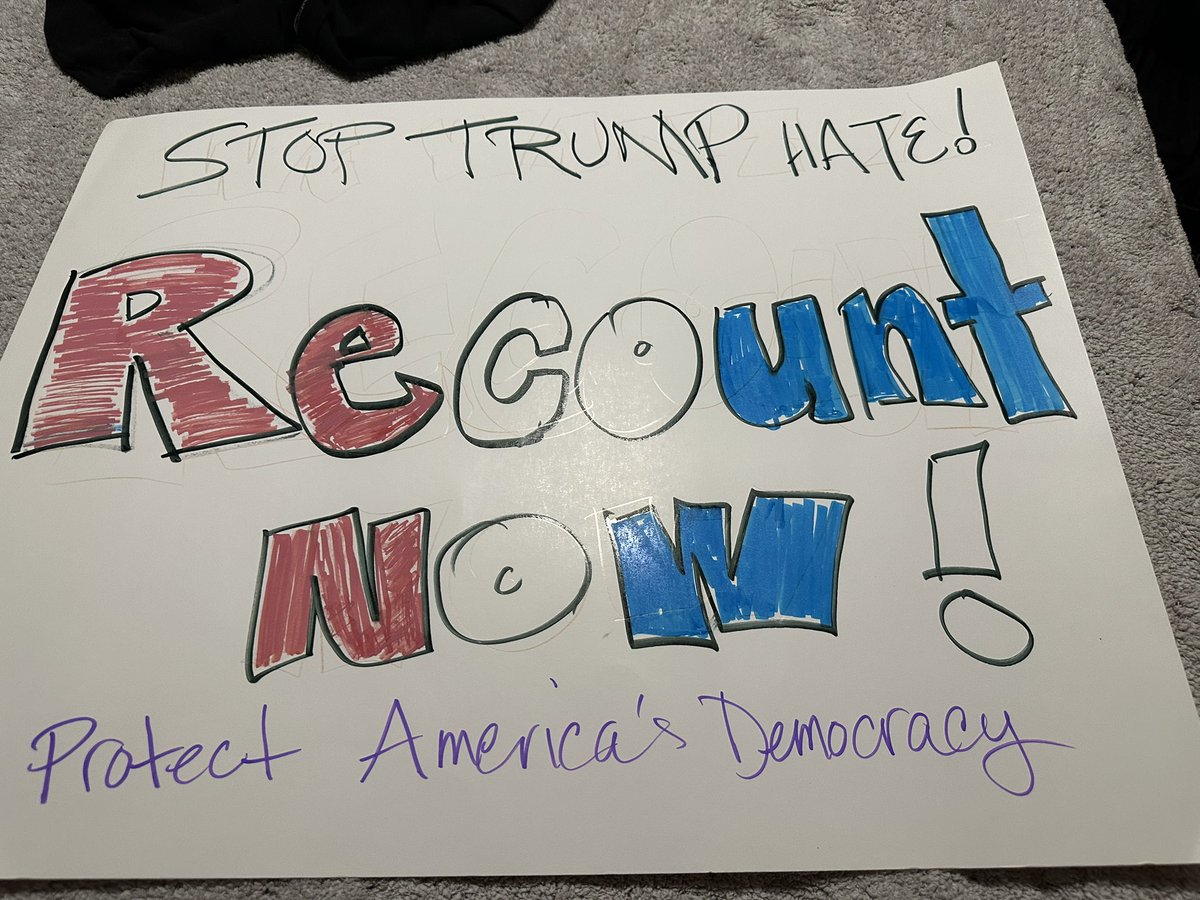 STOP TRUMP HATE!
Recount
NOW!
Protect America's Democracy